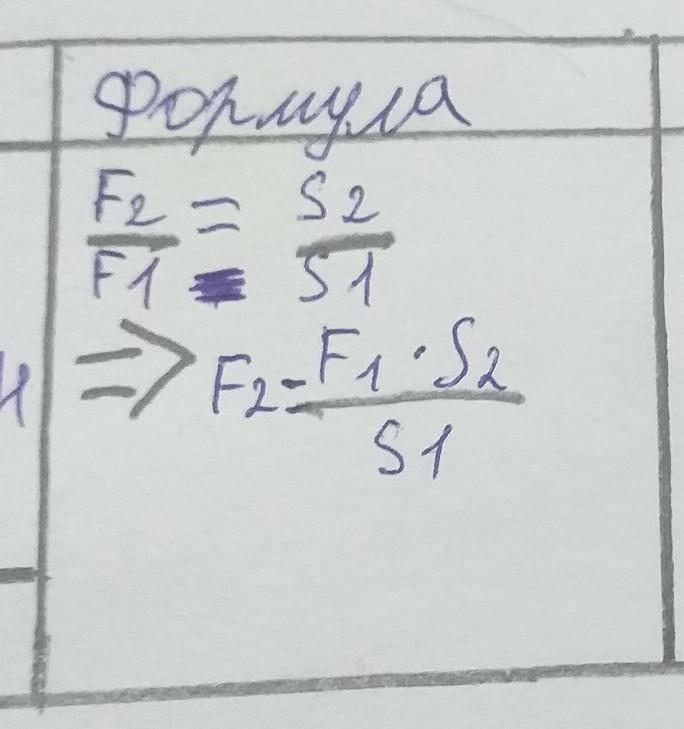 Формула
F2 = S2
F1 S1
=> F2 = F1 · S2
S1